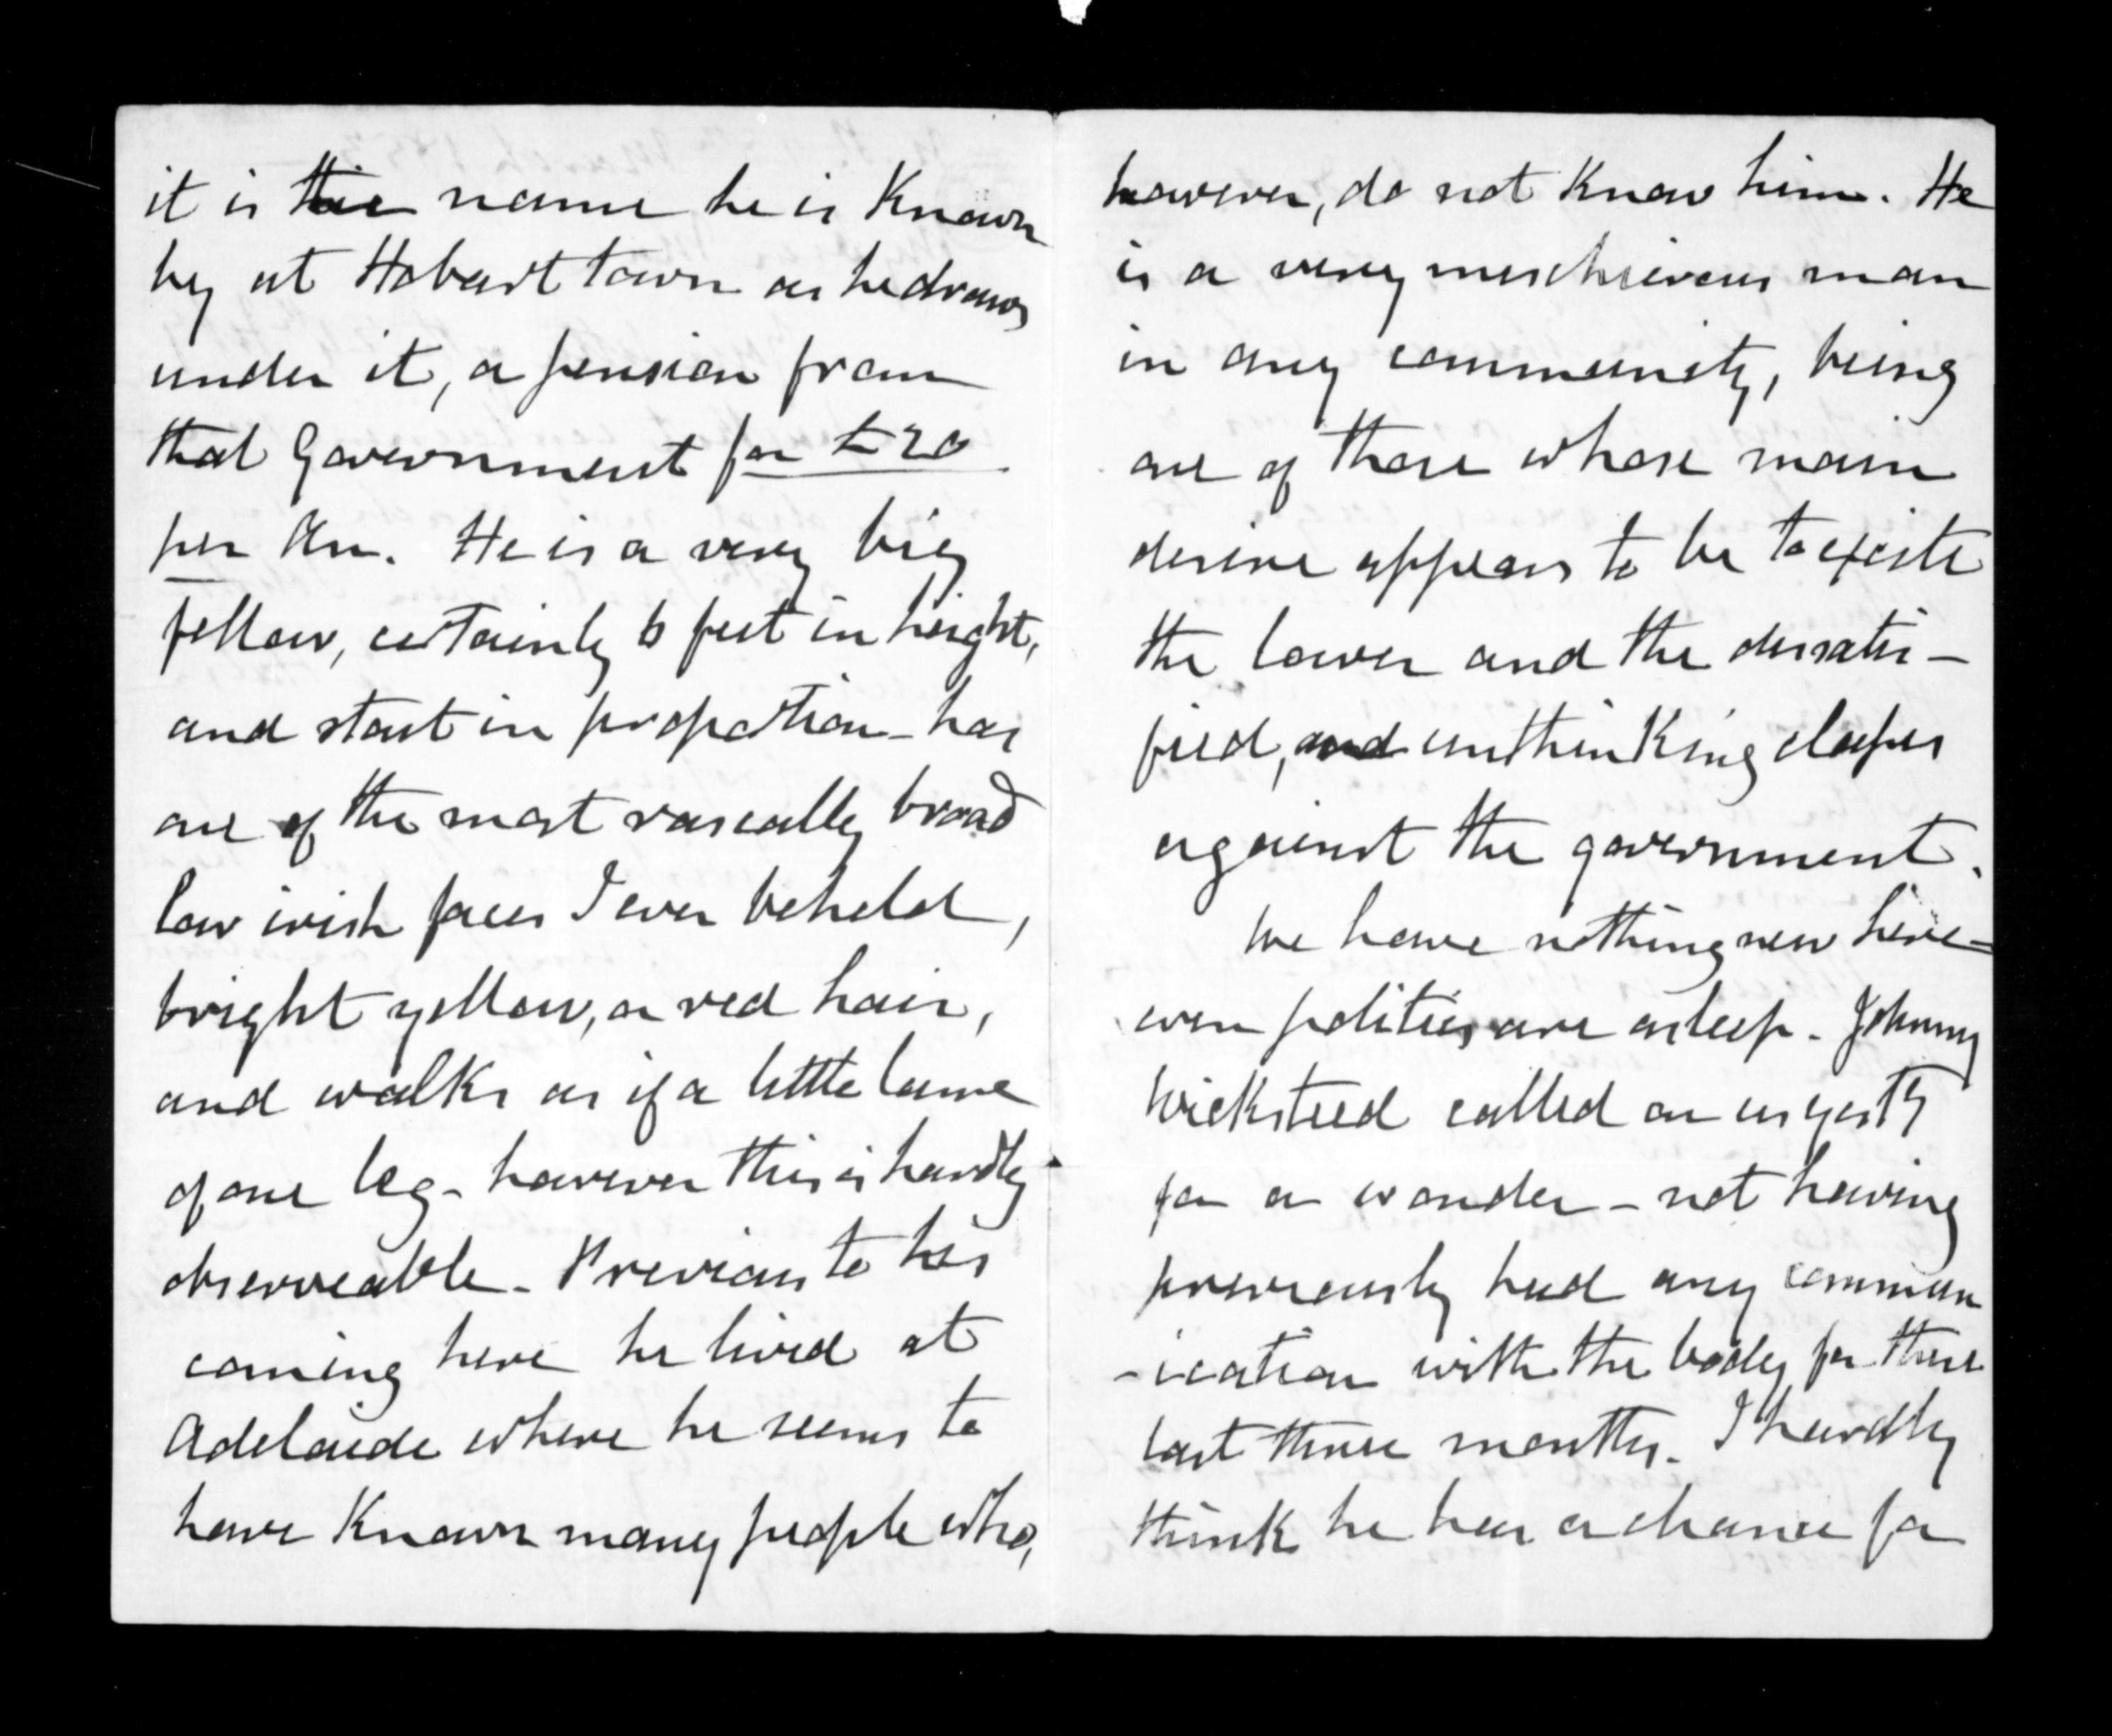 it is the name he is Known
by at Hobart town as he draws
under it, a pension from
that Government for £20
per An. He is a very big
fellow, certainly 6 feet in height,
and stout in propotion - has
one of the most rascally broad
low irish faces I ever beheld,
bright yellow, or red hair,
and walks as if a little lame
of one leg - however this is hardly
observeable. Previous to his
coming here he lived at
Adelaide where he seems to
have Known many people who,
however, do not Know him. He
is a very mischievous man
in any community, being
one of those whose main
desire appears to be to excite
the lower and the dissatis-
fied, and unthinking classes
against the government.
We have nothing new here =
even politics are asleep. Johnny
Wicksteed called on us yesty
for a wonder - not having
previously had any commun
-ication with the body for these
last three months. I hardly
think he has a chance for